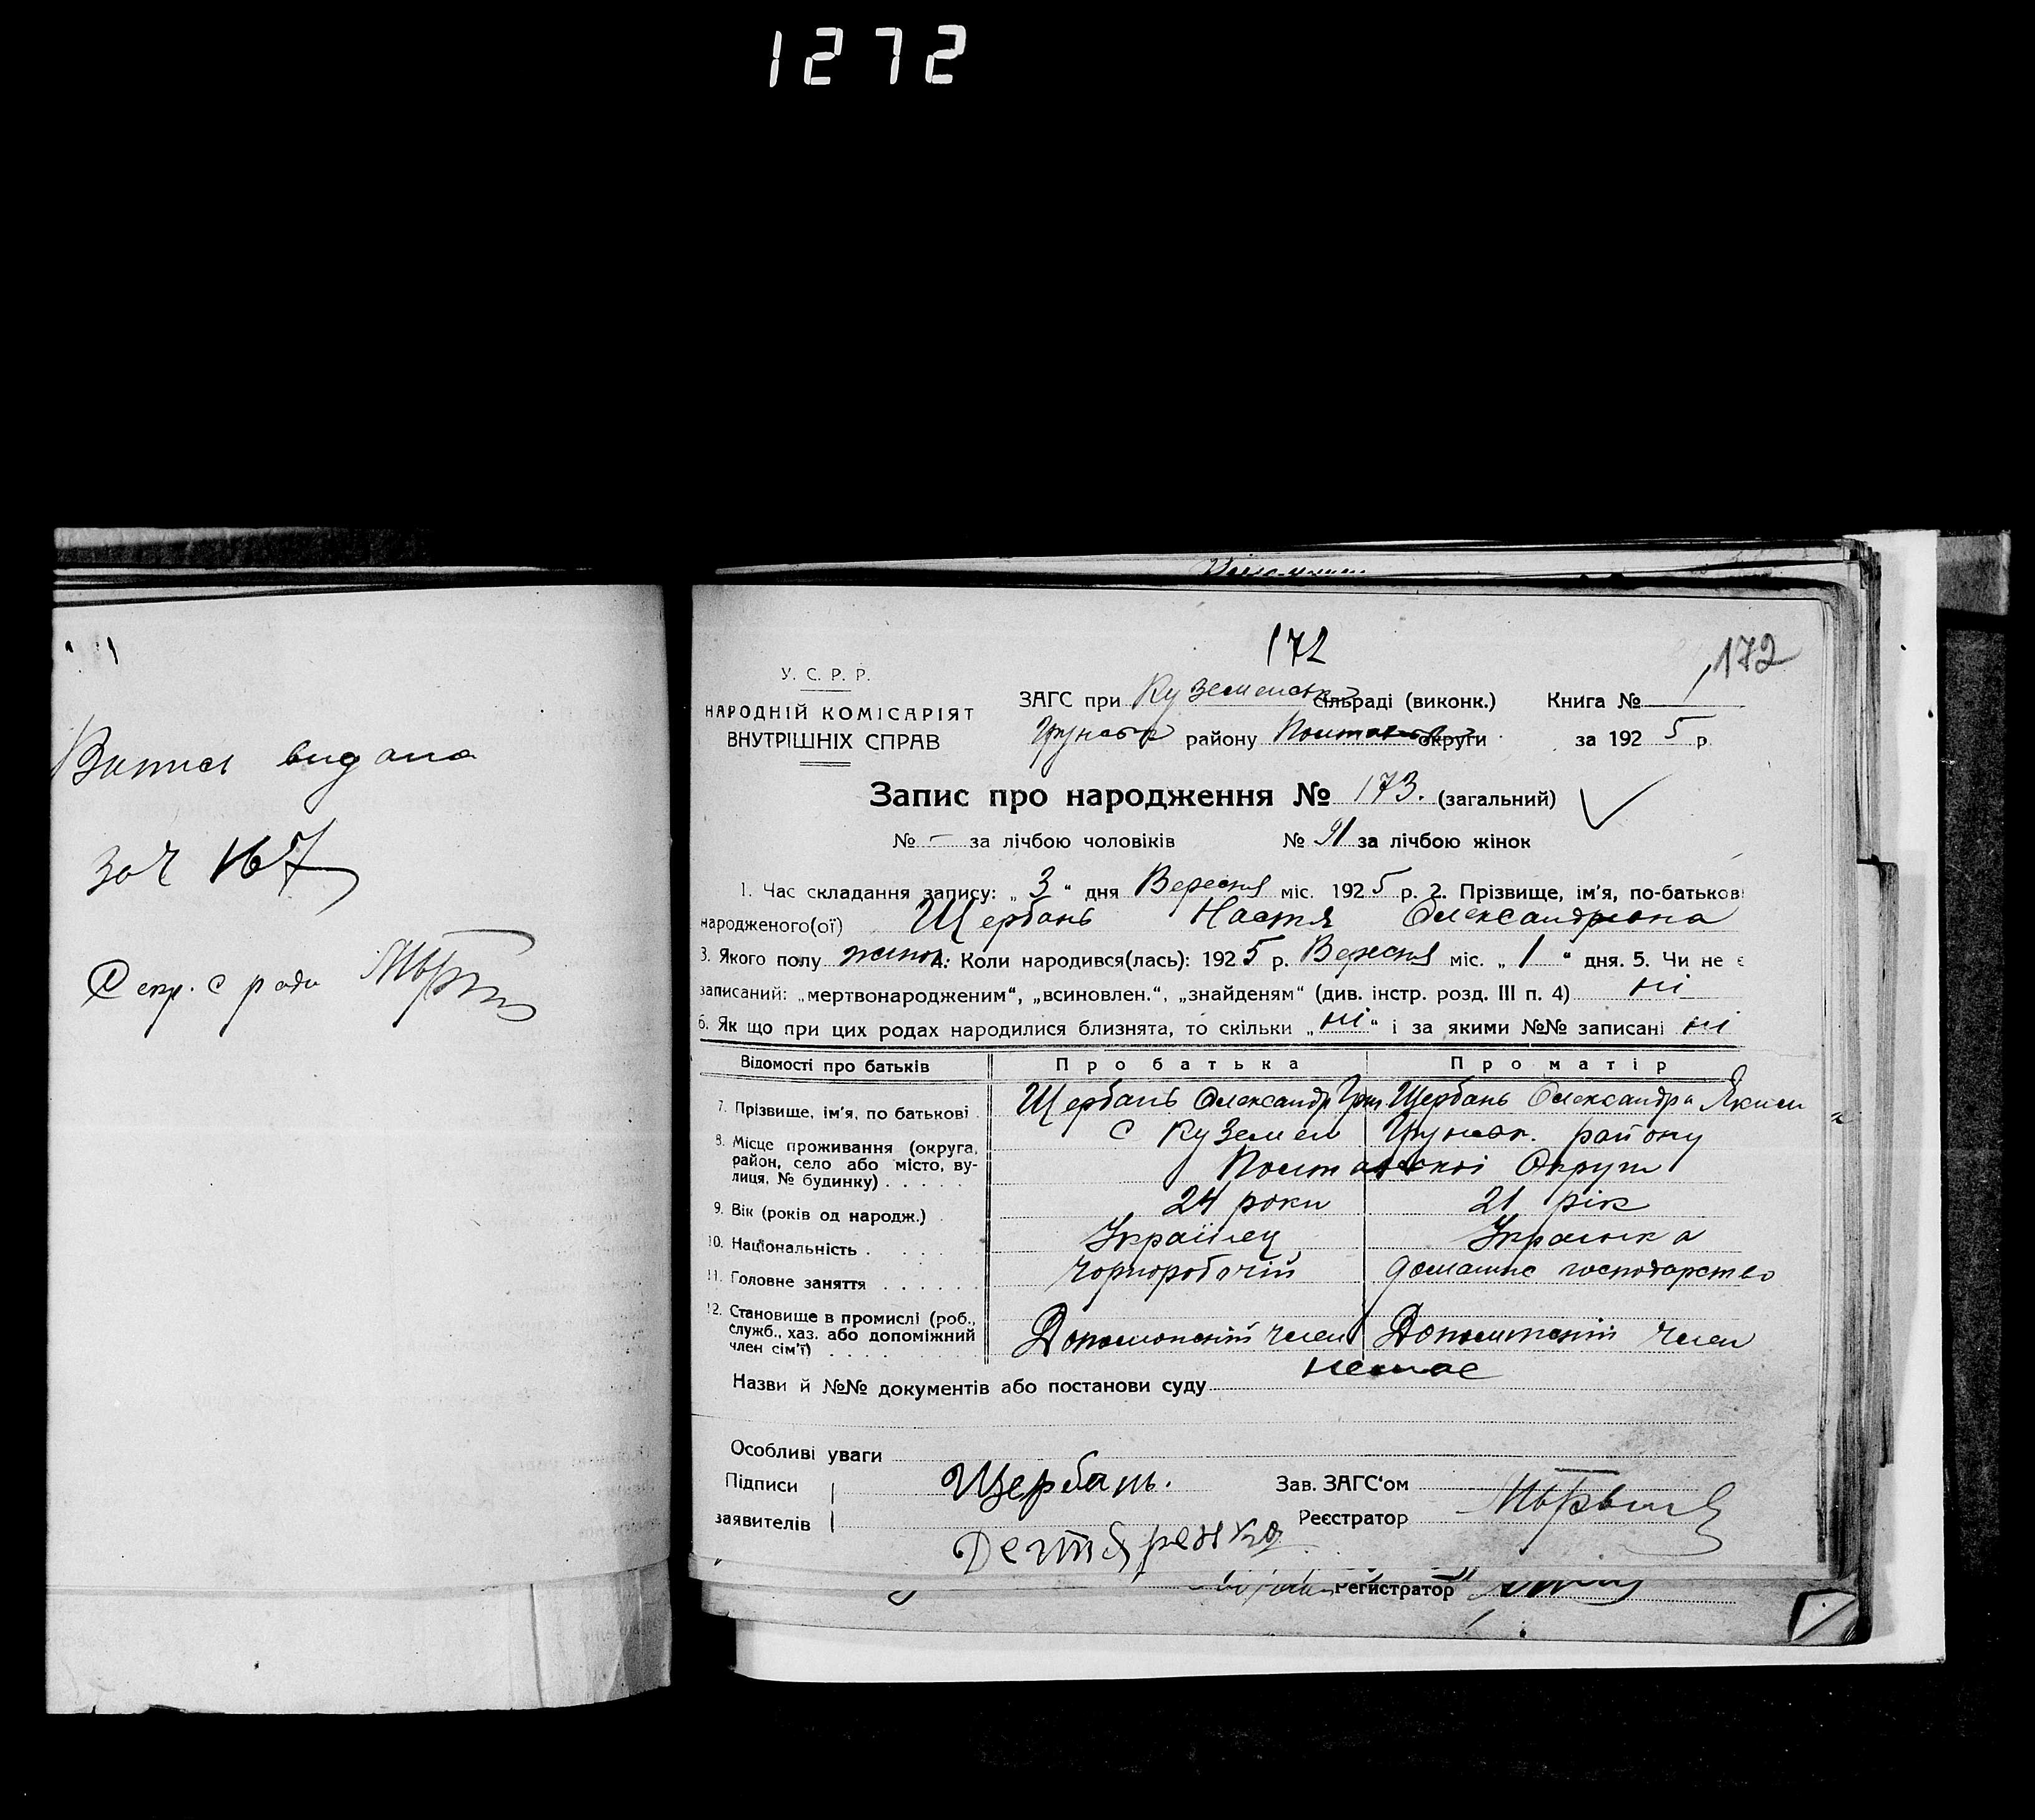 1272
Запись видана
за ч 167
Секр. с ради
172
172
У. С. Р. Р.
НАРОДНІЙ КОМІСАРІЯТ
ВНУТРІШНІХ СПРАВ
ЗАГС при Куземенськ сільраді (виконк.) Книга № 1
Грунськ району Полтавськ округи за 1925 р.
Запис про народження № 173. (загальний)
№ - за лічбою чоловіків № 91 за лічбою жінок
1. Час складання запису: „3“ дня Вересня міс. 1925 р. 2. Прізвище, ім'я, по-батькові
народженого(ої) Щербань Настя Олександровна
3. Якого полу жіноч. 4. Коли народився(лась): 1925 р. Вересня міс. „1“ дня. 5. Чи не є
записаний: „мертвонародженим“, „всиновлен.“, „знайденям“ (див. інстр. розд. III п. 4) ні
6. Як що при цих родах народилися близнята, то скільки „ні“ і за якими №№ записані ні
Відомості про батьків Про батька Про матір
7. Прізвище, ім'я, по батькові Щербань Олександр Гри Щербань Олександра Яким
8. Місце проживання (округа, район, село або місто, вулиця, № будинку) с Куземен Грунськ. району
Полтавської Округи
9. Вік (років од народж.) 24 роки 21 рік
10. Національність Українец Українка
11. Головне заняття Чорноробочій домашнє господарство
12. Становище в промислі (роб., служб., хаз. або допоміжний член сім'ї) Допоможній член Допоможній член
Назви й №№ документів або постанови суду немає
Особливі уваги
Підписи Щербань. Зав. ЗАГС'ом
заявителів Реєстратор
Регистратор